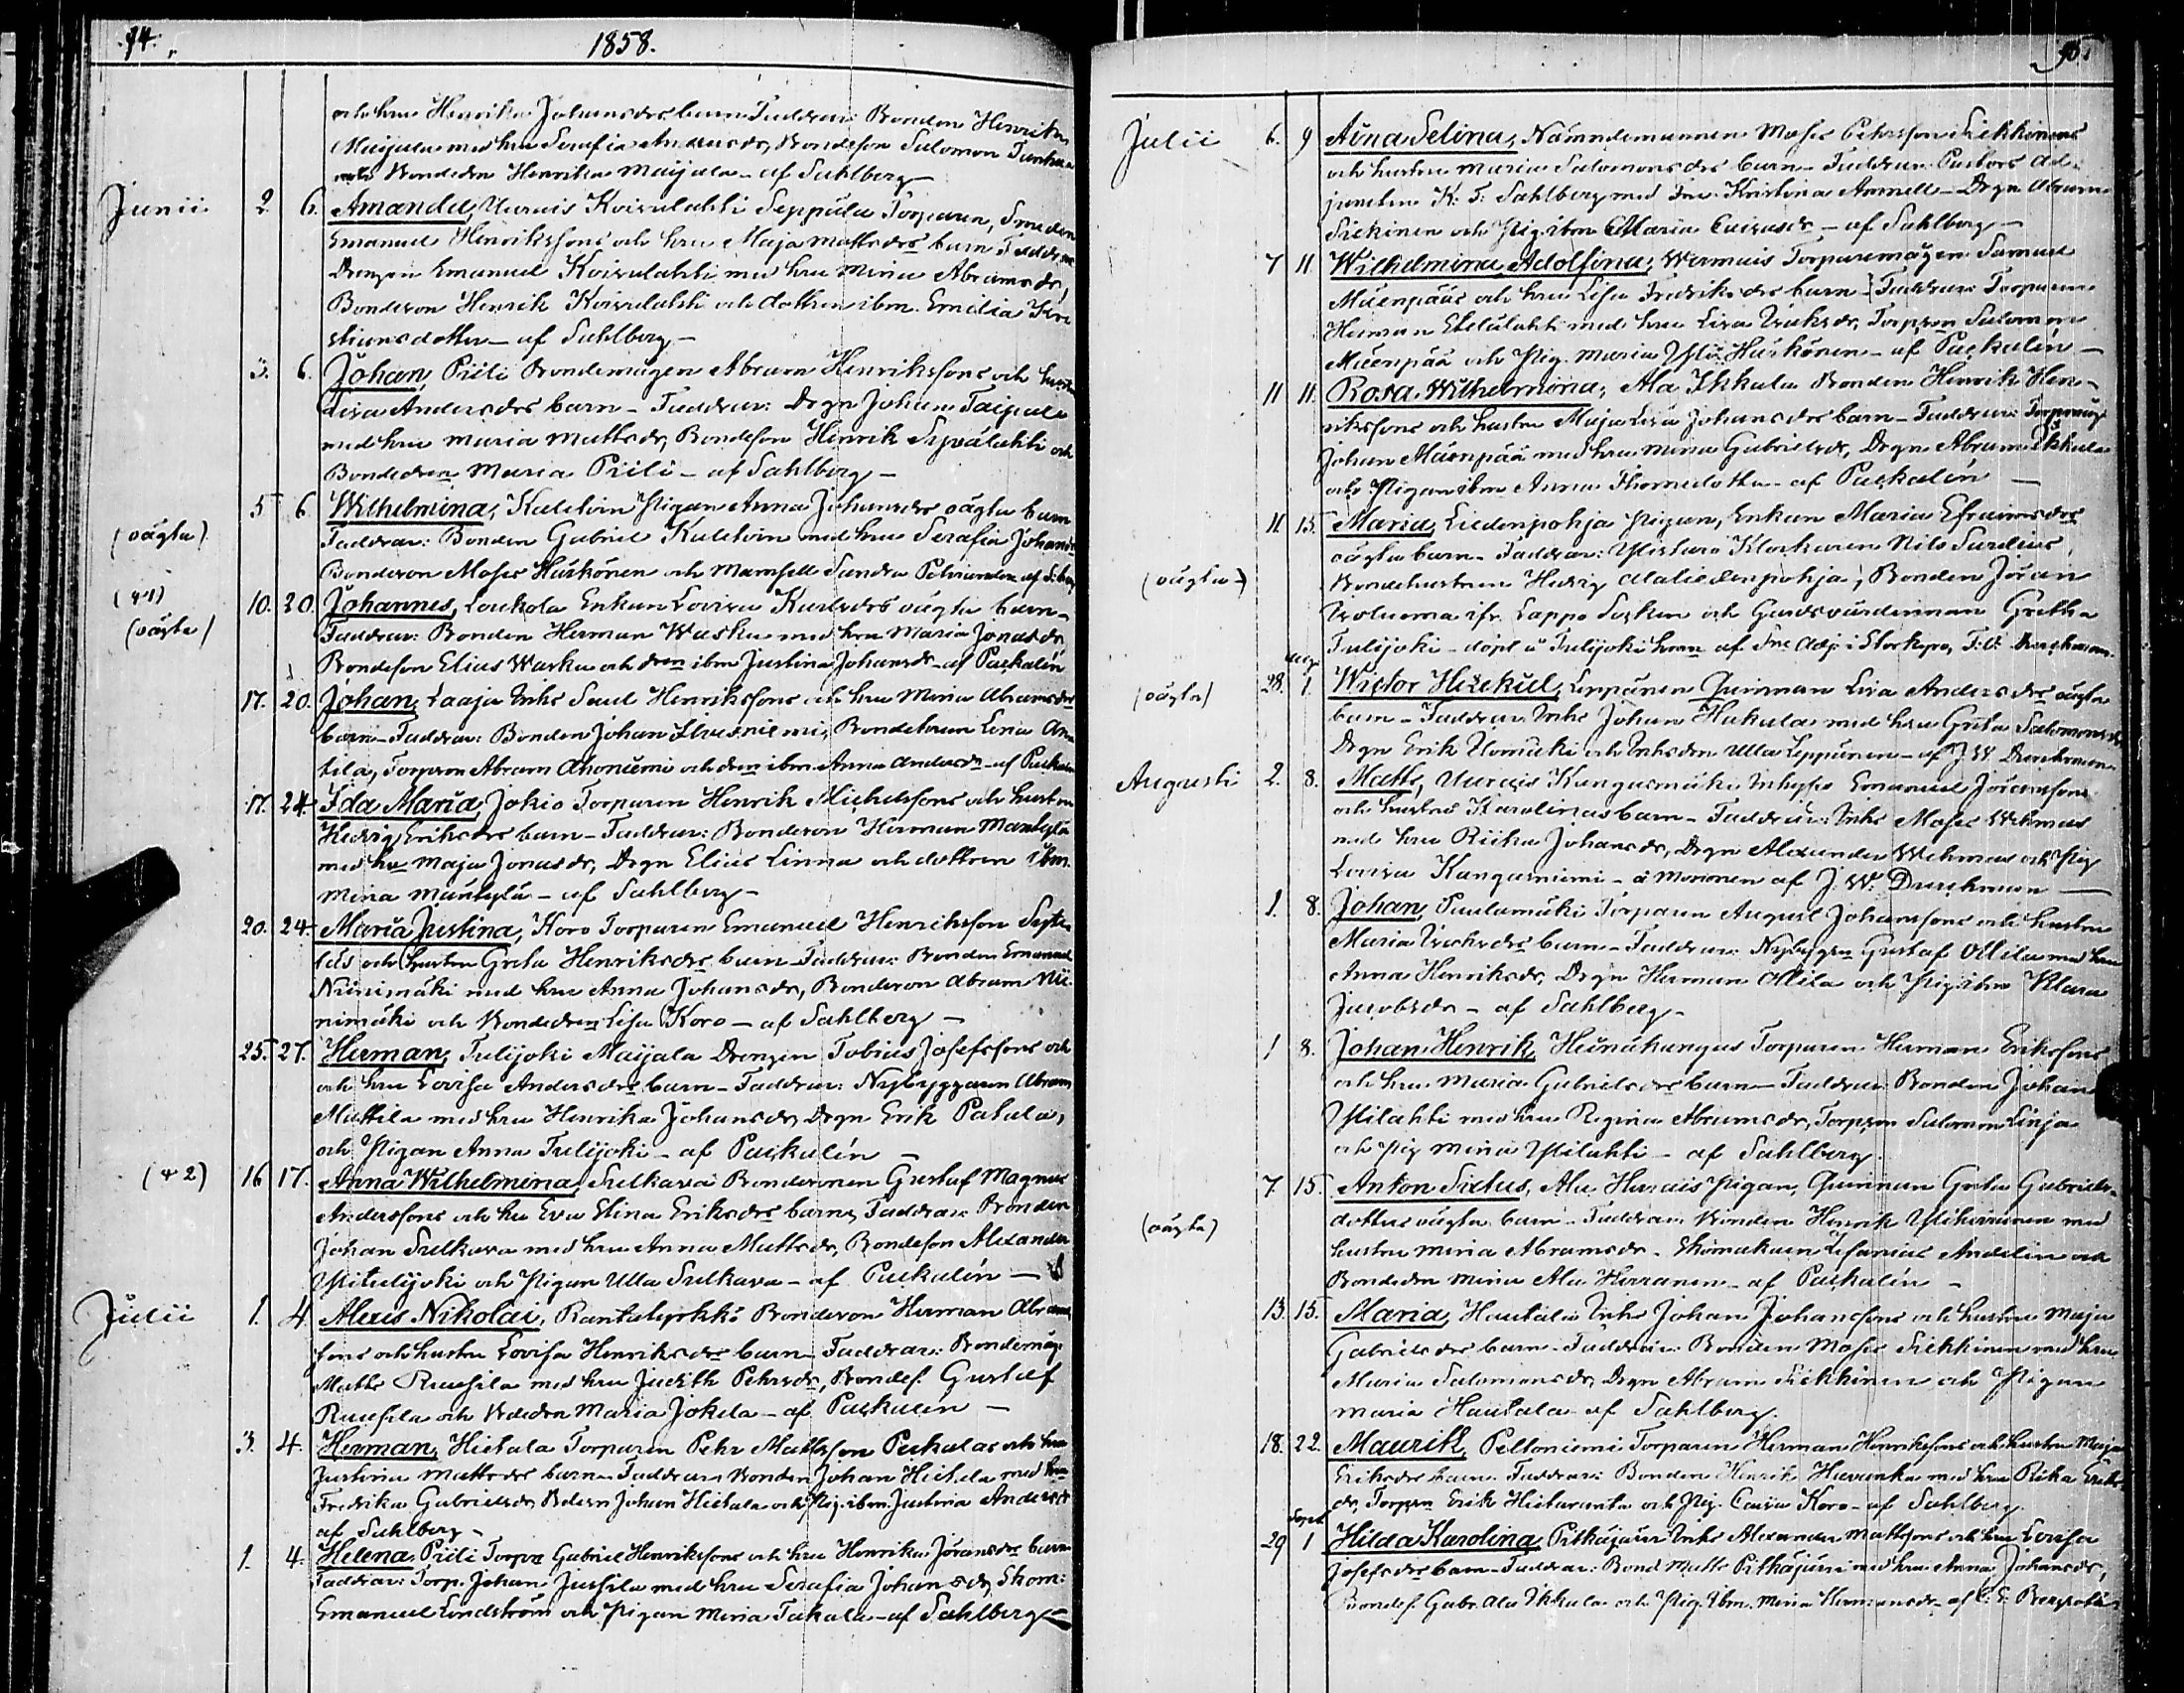 94.
1858.
och hru Henrika Johansdrs barn Faddrar: Bonden Henrik
Maijala med hru Serafia Andersdr, Bondeson Salomon
och Bondedrn Henrika Maijala - af Sahlberg
Junii 2. 6. Amanda, Uurais Koivulahti Seppälä Torparen, Smeden
Emanuel Henrikssons och hru Maja Mattsdrs barn Faddrar
Drengen Emanuel Koivulahti med hru Mina Abramsdr,
Bondeson Henrik Koivulahti och dottren ibm. Emilia
stiansdotter - af Sahlberg -
3. 6. Johan, Priili Bondemågen Abram Henrikssons och hustru
Lisa Andersdrs barn - Faddrar: Drgn Johan Taipale
med hru Maria Mattsdr, Bondeson Henrik Sepälahti och
Bondedren Maria Priili - af Sahlberg -
(oägta) 5 6. Wilhelmina, Kuletoin Pigan Anna Johansdrs oägta barn
Faddrar: Bonden Gabriel Kuletoin med hru Serafia Johansdr
Bondeson Moses Harkönen och Mamsell Sandra
(41)
(oägta) 10. 20. Johannes, Loukola Enkan Lovisa Karlsdrs oägta barn -
Faddrar: Bonden Herman Waska med hru Maria Jonasdr
Bondeson Elias Waska och drn ibm Justina Johansdr - af Paekalén
17. 20. Johan, Laaja Inhs Saul Henrikssons och hru Maria Abramsdrs
barn - Faddrar: Bonden Johan Bondehrun Lena
tila, Torpson Abram Ahoniemi och drn ibm Anna Andersdr - af
17. 24. Ida Maria, Jokio Torparen Henrik Michelssons och hustru
Hedvig Eriksdrs barn - Faddrar: Bondeson Herman Mantylä
med hru Maja Jonasdr, Drgn Elias Linna och dottren ibm.
Mina Mäntylä - af Sahlberg -
20. 24. Maria Justina, Koro Torparen Emanuel Henriksson
och hustru Greta Henriksdrs barn - Faddrar: Bonden Emanuel
Niinimäki med hru Anna Johansdr, Bondeson Abram Nii-
nimäki och Bondedren Lisa Koro - af Sahlberg -
25. 27. Herman, Tulijoki Maijala Drengen Tobias Josefssons och
och hru Lovisa Andersdrs barn - Faddrar: Nybyggaren Abram
Mattila med hru Henrika Johansdr, Drgn Erik Patala,
och Pigan Anna Tulijoki - af Paekalén -
(42) 16 17. Anna Wilhelmina, Sulkava Bondesonen Gustaf Magnus
Anderssons och hru Eva Elina Eriksdrs barn, Faddrar: Bonden
Johan Sulkava med hru Anna Mattsdr, Bondeson Alexander
Ylitulijoki och Pigan Ulla Sulkava - af Paekalén -
Julii 1. 4. Alexis Nikolai, Rantalyökki Bondeson Herman Abram
sons och hustru Lovisa Henriksdrs barn - Faddrar: Bondemåg.
Matts Ruusila med hru Judith Pehrsdr, Bondes. Gustaf
Ruusila och Bdedrn Maria Jokela - af Paekalén -
3. 4. Herman, Hietala Torparen Pehr Mattsson Pukalas och hru
Justina Mattsdrs barn - Faddrar: Bonden Johan Hietala med hru
Fredrika Gabrielsdr, Bdesn Johan Hietala och Pig. ibm. Justina Andersdr
af Sahlberg -
1. 4. Helena, Priili Torpar Gabriel Henrikssons och hru Henrika Jöransdrs barn
Faddrar: Torp. Johan Jussila med hru Serafia Johansdr, Skom:
Emanuel Lindström och Pigan Mina Takala - af Sahlberg -
95.
Julii 6. 9 Aina Selina, Nämndemannen Moses Pehrsson Siekkinens
och hustru Maria Salomonsdrs barn - Faddrar: Pastors Ad-
juncten K. F. Sahlberg med Fru Kristina Arnell - Drgn Abram
Siekinen och Pig. ibm Maria - af Sahlberg -
7 11. Wilhelmina Adolfina, Wermais Torparemågen Samuel
Mäenpääs och hru Lisa Fredriksdrs barn - Faddrar: Torparen
Herman Etelälahti med hru Lisa Isaksdr, Torpson Salomon
Mäenpää och Pig. Maria Yli Harkönen - af Paekalén -
11 11. Rosa Wilhelmina, Ala Ikkala Bonden Henrik Hen-
rikssons och hustru Maja Lisa Johansdrs barn - Faddrar: Torpmåg
Johan Mäenpää med hru Mina Gabrielsdr, Drgn Abram Ikkala
och Pigan ibm Anna Thomedotter - af Paekalén -
(oägta) 11. 15. Maria, Liedenpohja Pigan, Enkan Maria Efraimsdrs
oägta barn - Faddrar: Ylistaro Klockaren Nils Sardius,
Bondehustrun Hedvig Alaliedenpohja, Bonden Jöran
Isotuoma ifr. Lappo Socken och Gårdvärdinnan Gretha
Tulijoki - döpt å Tulijoki hem af Adj. i Storkyro,
(oägta) 28. 1. Wictor Hezekiel, Leppänen Qvinnan Lisa Andersdrs oägta
barn - Faddrar: Inhs Johan Hakala med hru Greta Salomonsdr
Drgn Erik och Inhsdrn Ulla Leppänen - af J W Durchman
Augusti 2. 8. Matts, Uurais Kangasmäki Inhyses Emanuel Jöranssons
och hustrus Karolinas barn - Faddrar: Inhs Moses Wehmas
med hru Riika Johansdr, Drgn Alexander Wehmas och Pig
Lovisa Kangasniemi - å Morinen af J. W. Durchman -
1. 8. Johan, Paulamäki Torparen August Johanssons och hustru
Maria Isaksdrs barn - Faddrar: Nybygrn Gustaf Ollila med hru
Anna Henriksdr, Drgn Herman Ollila och Pig ibm Klara
Jacobsdr - af Sahlberg -
1 8. Johan Henrik, Heinäkangas Torparen Herman Erikssons
och hru Maria Gabrielsdrs barn - Faddrar: Bonden Johan
Ylilahti med hru Regina Abramsdr, Torpson Salomon Linja
och Pig Mina Ylilahti - af Sahlberg.
(oägta) 7. 15. Anton Sixtus, Ala Pigan, Qvinnan Greta Gabriels-
dotters oägta barn - Faddrar: Bonden Henrik med
hustru Mina Abramsdr - Skomakaren Zefanias Andelin och
Bondedrn Mina Ala Herranen - af Paekalén -
13. 15. Maria, Hautala Inhs Johan Johanssons och hustru Maja
Gabrielsdrs barn - Faddrar: Bonden Moses Siekkinen med hru
Maria Salomonsdr, Drgn Abram Siekkinen och Pigan
Maria Hautala - af Sahlberg
18. 22. Maurits, Peltoniemi Torparen Herman Henrikssons och hustru Maja
Eriksdrs barn - Faddrar: Bonden Henrik Havunka med hru Rika Eriks-
dr, Torpsn Erik Hietaranta och Pig. Caisa Koro - af Sahlberg
Sept.
29 1 Hilda Karolina, Pitkäjärvi Inhs Alexander Mattssons och hru Lovisa
Josefsdrs barn - Faddrar: Bond Matts Pitkäjärvi med hru Anna Johansdr,
Bondes. Gabr. Ala Ikkala och Pig. Ibm. Mina Hermansdr - af